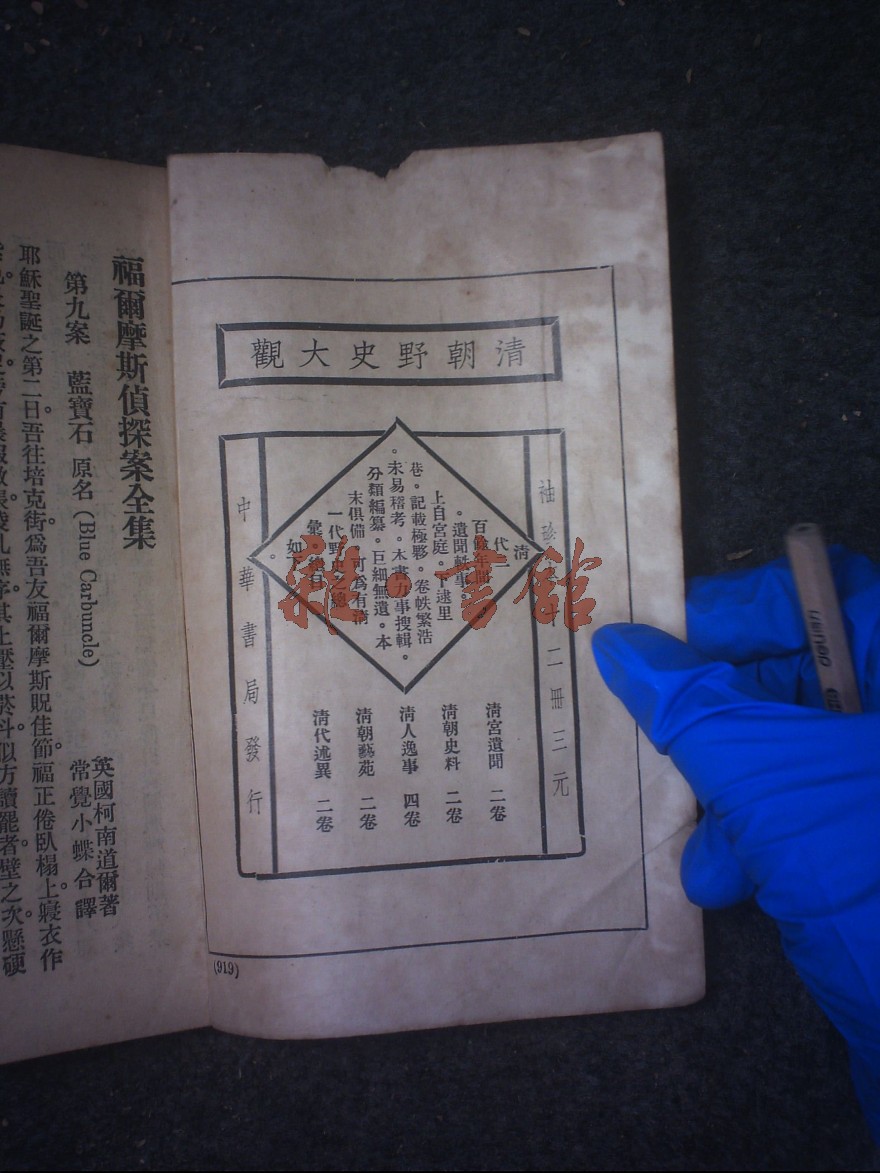 清朝野史大觀
袖珍
十二冊三元
清
代二
百餘年間
。遺聞軼事。
上自宮庭。下逮里
巷。記載極夥。卷帙繁浩
。未易稽考。本書力事搜輯。
分類編纂。巨細無遺。本
末俱備
可為有清
一代野史之總
彙。
如下
。
中華書局發行
清宮遺聞 二卷
清朝史料 二卷
清人逸事 四卷
清朝藝苑 二卷
清代述異 二卷
(919)
福爾摩斯偵探案全集
第九案 藍寶石 原名(Blue Carbuncle)
英國柯南道爾著
常覺小蝶合譯
耶穌聖誕之第二日。吾往培克街。為吾友福爾摩斯貺佳節。福正倦臥榻上。寢衣作
無序。其上壓以菸斗。似方讀罷者。壁之次懸硬
雜書館
deli